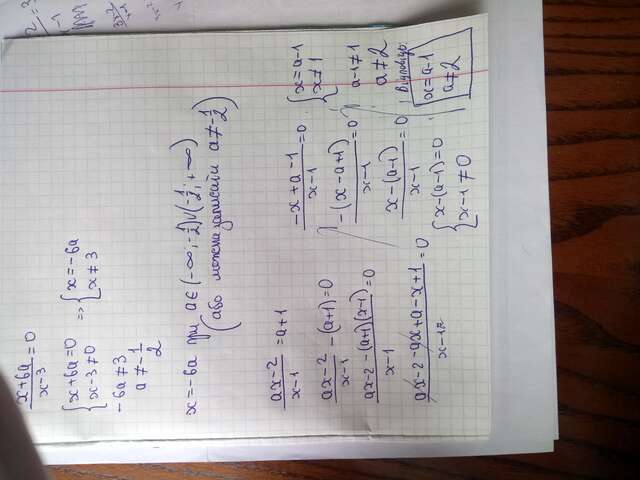 x+6a / x-3 = 0
{ x+6a=0
x-3≠0 => { x=-6a
x≠3
-6a≠3
a≠-1/2
x=-6a при a∈(-∞;-1/2)∪(-1/2;+∞)
(або можна записати a≠-1/2)
ax-2 / x-1 = a+1
ax-2 / x-1 -(a+1)=0
ax-2-(a+1)(x-1) / x-1 =0
ax-2-ax+a-x+1 / x-1 =0
-x+a-1 / x-1 =0
-(x-a+1) / x-1 =0
x-(a-1) / x-1 =0
{ x-(a-1)=0
x-1≠0
{ x=a-1
x≠1
a-1≠1
a≠2
Відповідь:
x=a-1
a≠2
2
=3
-1
3x-2 / x-1